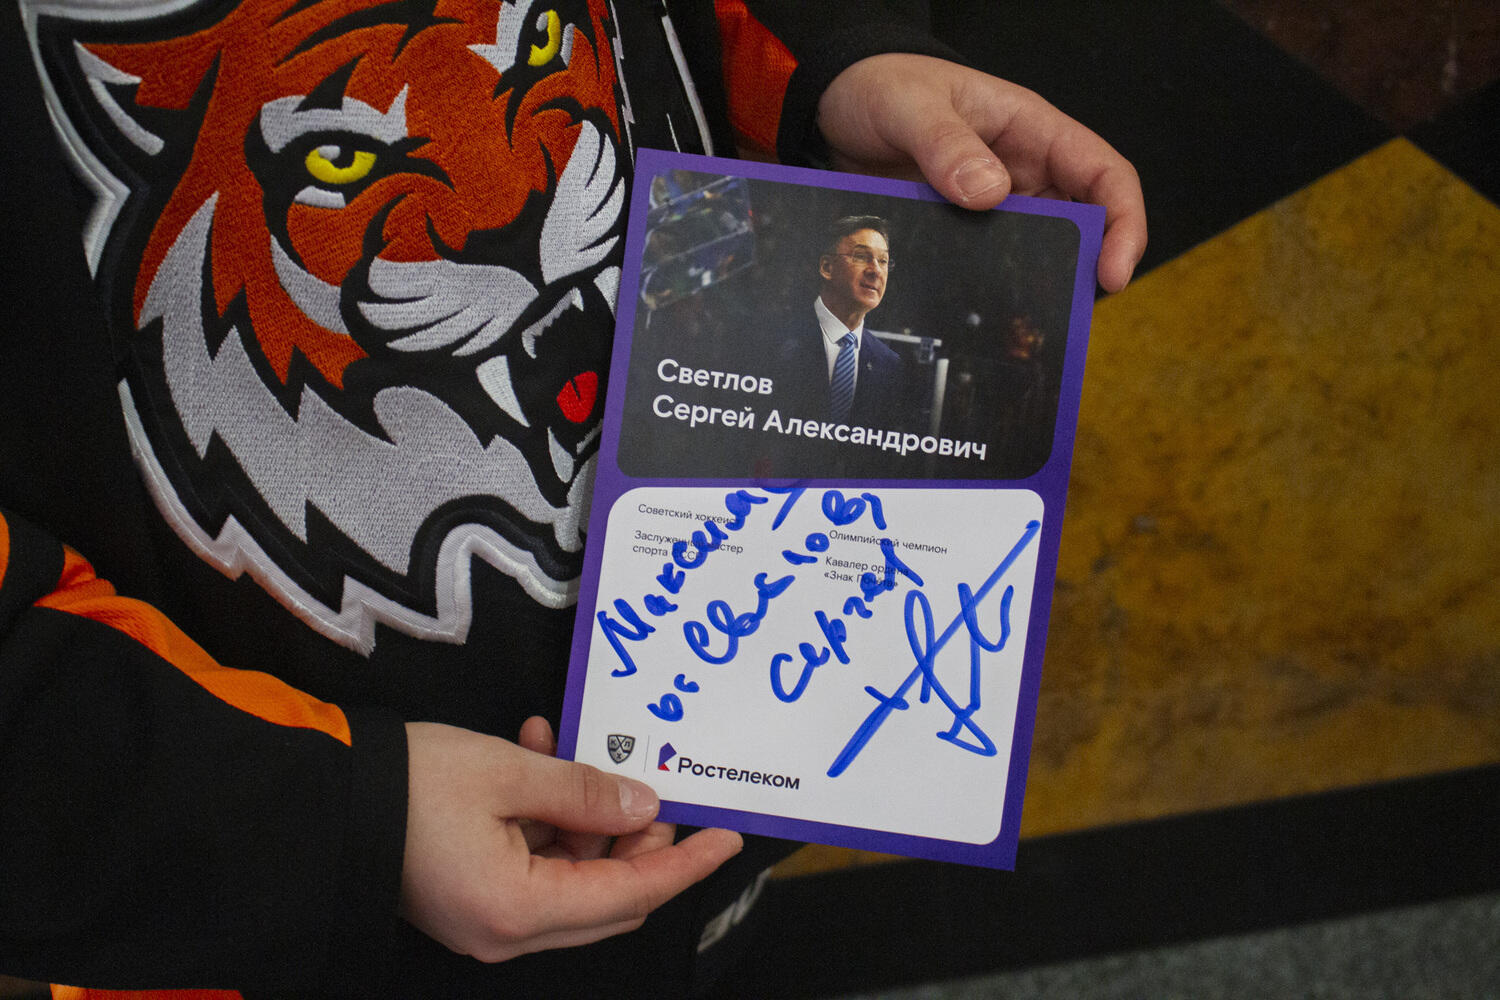 Светлов
Сергей Александрович
Советский хоккеист
Заслуженный мастер
спорта СССР
Олимпийский чемпион
Кавалер ордена
«Знак Почёта»
Максиму
от Светлова
Сергея
КХЛ
Ростелеком